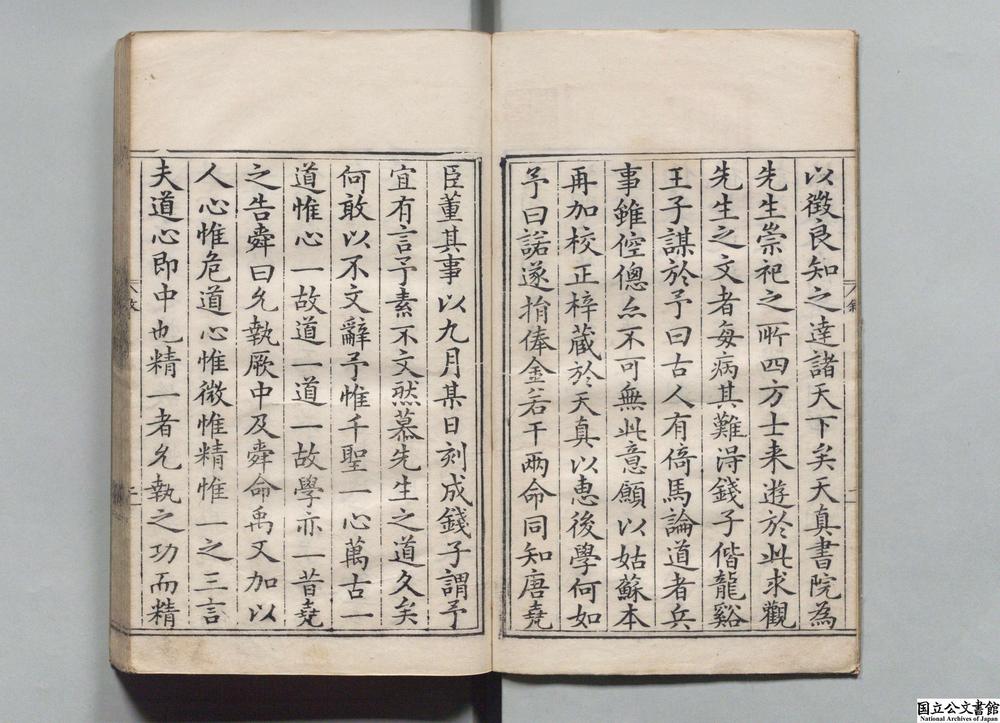 以徵良知之達諸天下矣天真書院為
先生崇祀之所四方士来遊於此求觀
先生之文者每病其難淂錢子偕龍谿
王子謀於予曰古人有倚馬論道者兵
事雖倥傯亦不可無此意願以姑蘇本
再加校正梓藏於天真以惠後學何如
予曰諾遂捐俸金若干兩命同知唐堯
臣董其事以九月某日刻成錢子謂予
宜有言予素不文然慕先生之道久矣
何敢以不文辭予惟千聖一心萬古一
道惟心一故道一道一故學亦一昔堯
之告舜曰允執厥中及舜命禹又加以
人心惟危道心惟微惟精惟一之三言
夫道心即中也精一者允執之功而精
国立公文書館
National Archives of Japan